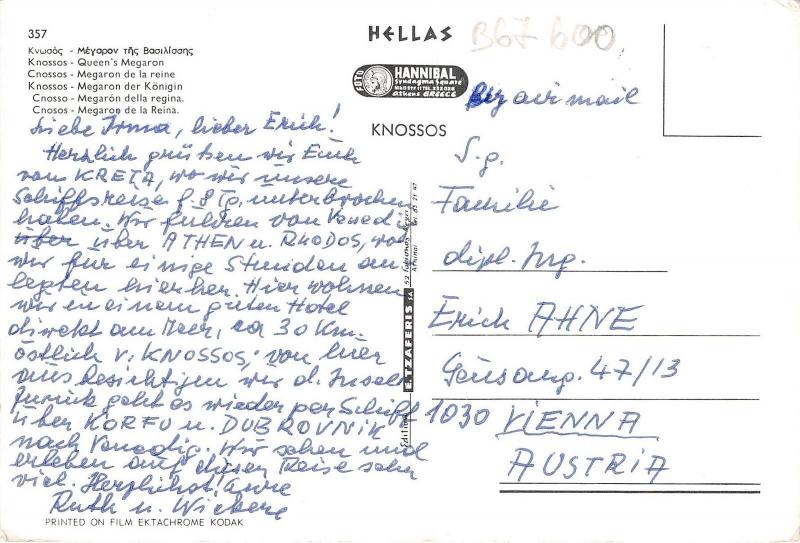 357
HELLAS
B67 600
Κνωσὸς - Μέγαρον τῆς Βασιλίσσης
Knossos - Queen's Megaron
Cnossos - Megaron de la reine
Knossos - Megaron der Königin
Cnosso - Megarón della regina.
Cnosos - Megaron de la Reina.
FOTO HANNIBAL
Syndagma Square
Athens GREECE
KNOSSOS
Liebe Irma, lieber Erich!
Herzlich grüßen wir Euch
von KRETA, wo wir unsere
Schiffsreise f. 8 Tg. unterbrochen
haben. Wir fuhren von Vened.
über über ATHEN u. RHODOS, wo
wir für einige Stunden an
legten hierher. Hier wohnen
wir in einem guten Hotel
direkt am Meer, ca 30 Km.
östlich v. KNOSSOS, von hier
aus besichtigen wir d. Insel.
Zurück geht es wieder per Schiff
über KORFU u. DUBROVNIK
nach Venedig. Wir sehen und
erleben auf dieser Reise sehr
viel. Herzlichst! Eure
Ruth u.
PRINTED ON FILM EKTACHROME KODAK
Edition E. TZAFERIS SA
By air mail
S. g.
Familie
dipl. Ing.
Erich AHNE
47/13
1030 VIENNA
AUSTRIA